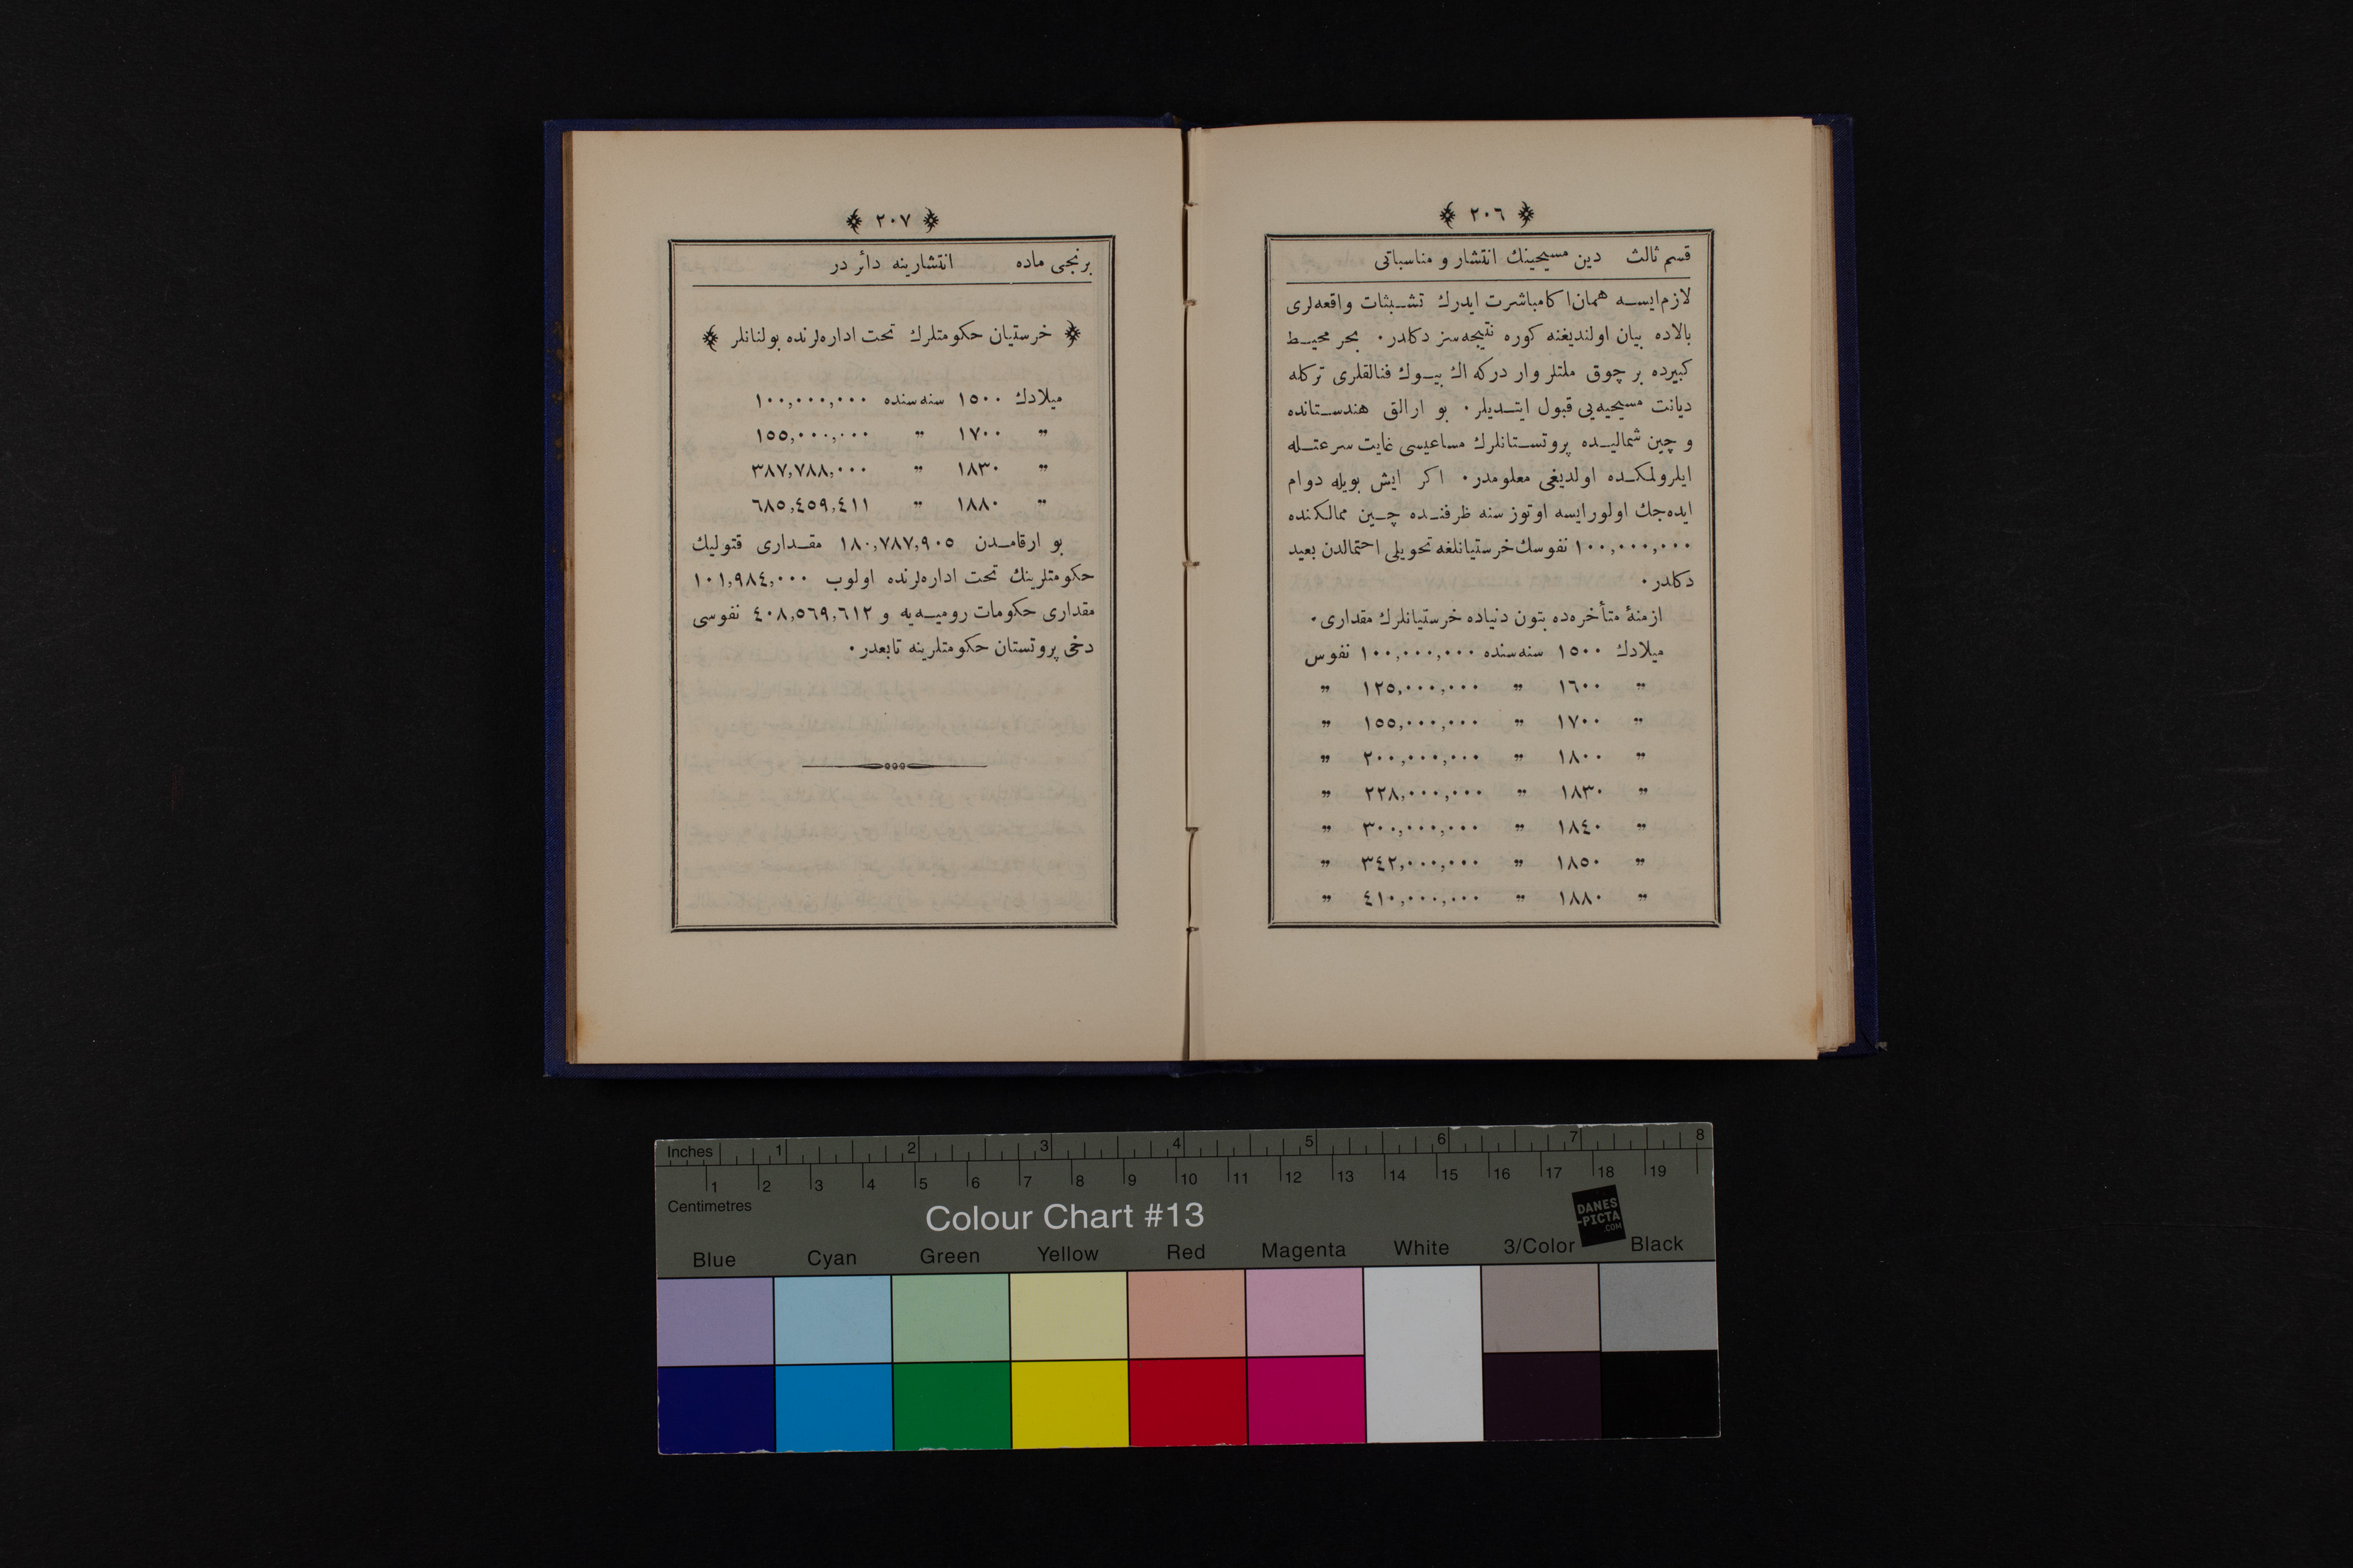 ﴿ ٢٠٦ ﴾
قسم ثالث دین مسیحینك انتشار و مناسباتی
لازم‌ایسـه همان‌ا کامباشرت ایدرك تشـبثات واقعه‌لری
بالاده بیان اولندیغنه کوره نتیجه‌سز دکلدر. بحر محیـط
کبیرده بر چوق ملتلر وار درکه اك بیـوك فنالقلری ترکله
دیانت مسیحیه‌یی قبول ایتـدیلر. بو ارالق هندسـتانده
و چین شمالیـده پروتسـتانلرك مساعیسی غایت سرعتـله
ایلرولمکـده اولدیغی معلومدر. اکر ایش بویله دوام
ایده‌جك اولورایسه اوتوز سنه ظرفنـده چـین ممالکنده
١٠٠,٠٠٠,٠٠٠ نفوسك خرستیانلغه تحویلی احتمالدن بعید
دکلدر.
ازمنۀ متأخره‌ده بتون دنیاده خرستیانلرك مقداری.
میلادك ١٥٠٠ سنه‌سنده ١٠٠,٠٠٠,٠٠٠ نفوس
„ ١٦٠٠ „ ١٢٥,٠٠٠,٠٠٠ „
„ ١٧٠٠ „ ١٥٥,٠٠٠,٠٠٠ „
„ ١٨٠٠ „ ٢٠٠,٠٠٠,٠٠٠ „
„ ١٨٣٠ „ ٢٢٨,٠٠٠,٠٠٠ „
„ ١٨٤٠ „ ٣٠٠,٠٠٠,٠٠٠ „
„ ١٨٥٠ „ ٣٤٢,٠٠٠,٠٠٠ „
„ ١٨٨٠ „ ٤١٠,٠٠٠,٠٠٠ „
﴿ ٢٠٧ ﴾
برنجی ماده انتشارینه دائر در
﴿ خرستیان حکومتلرك تحت اداره‌لرنده بولنانلر ﴾
میلادك ١٥٠٠ سنه‌سنده ١٠٠,٠٠٠,٠٠٠
„ ١٧٠٠ „ ١٥٥,٠٠٠,٠٠٠
„ ١٨٣٠ „ ٣٨٧,٧٨٨,٠٠٠
„ ١٨٨٠ „ ٦٨٥,٤٥٩,٤١١
بو ارقامـدن ١٨٠,٧٨٧,٩٠٥ مقـداری قتولیك
حکومتلرینك تحت اداره‌لرنده اولوب ١٠١,٩٨٤,٠٠٠
مقداری حکومات رومیـه‌یه و ٤٠٨,٥٦٩,٦١٢ نفوسی
دخی پروتستان حکومتلرینه تابعدر.
Inches 1 2 3 4 5 6 7 8
1 2 3 4 5 6 7 8 9 10 11 12 13 14 15 16 17 18 19
Centimetres
Colour Chart #13
DANES
-PICTA
.COM
Blue Cyan Green Yellow Red Magenta White 3/Color Black